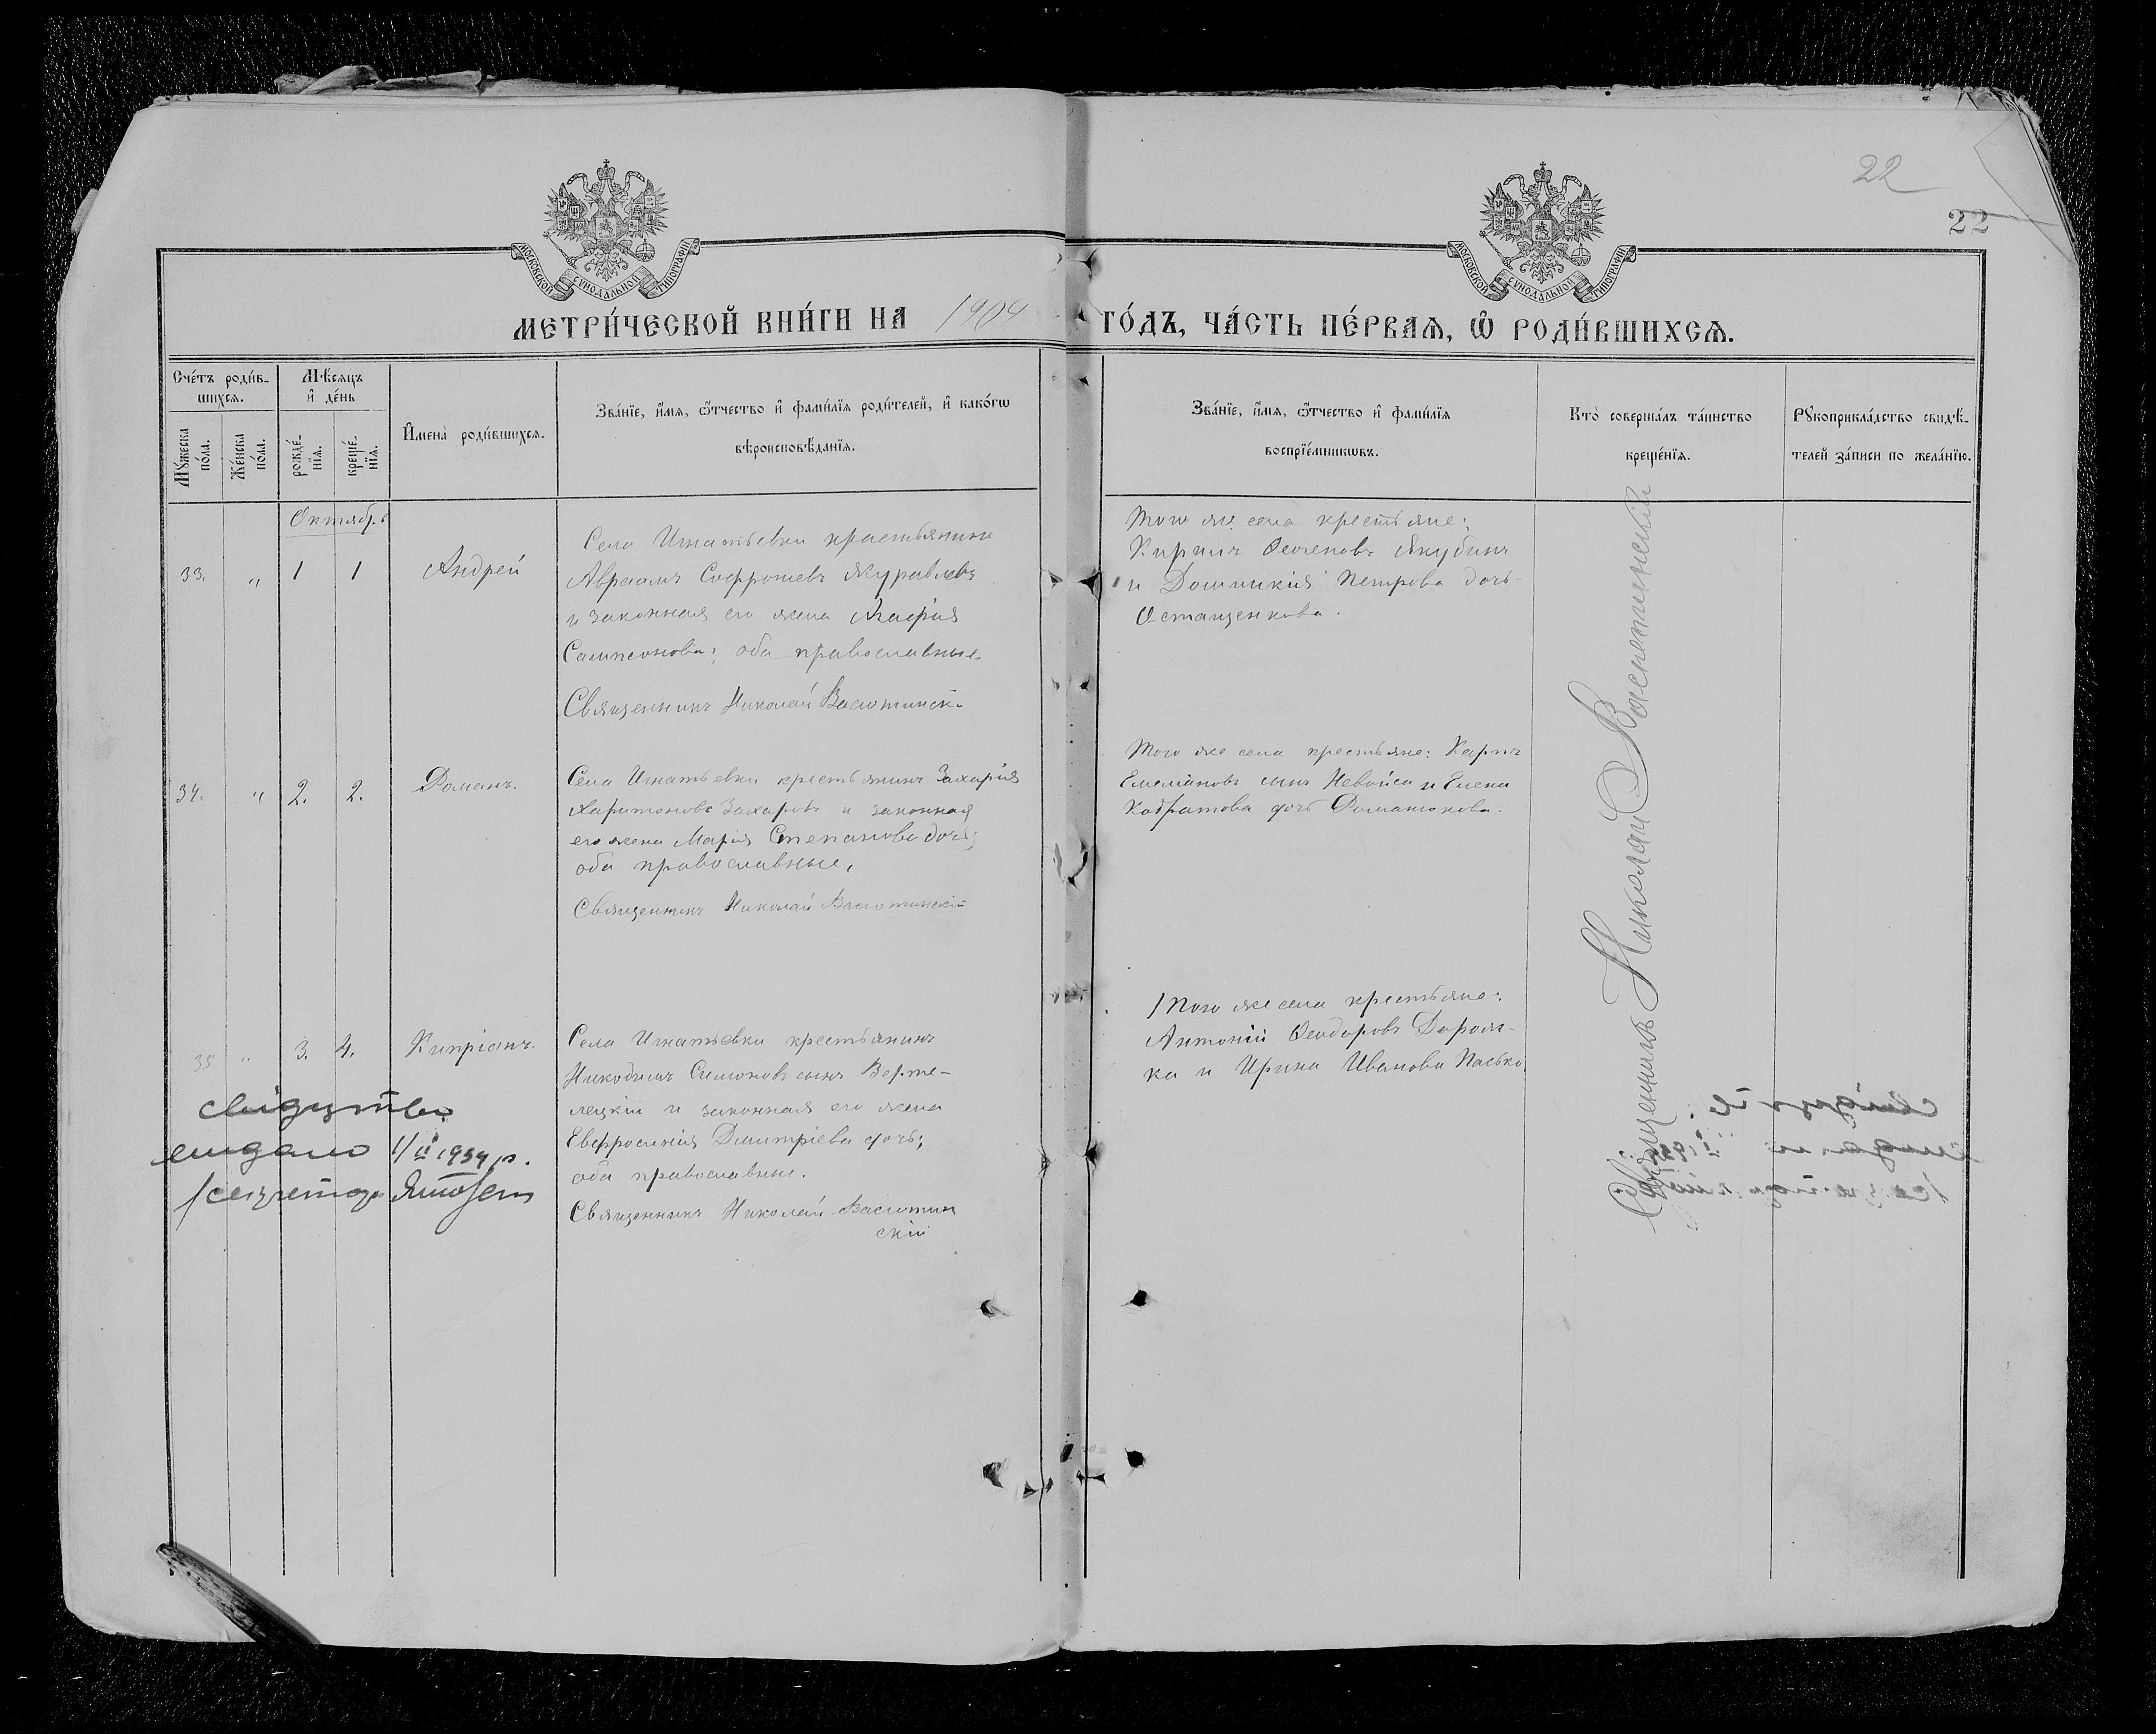 22
22
МОСКОВСКОЙ СѴНОДАЛЬНОЙ ТИПОГРАФІИ
МОСКОВСКОЙ СѴНОДАЛЬНОЙ ТИПОГРАФІИ
МЕТРИ́ЧЕСКОЙ КНИ́ГИ НА 1904 ГО́ДЪ, ЧА́СТЬ ПЕ́РВАѦ, Ѽ РОДИ́ВШИХСѦ.
Сче́тъ роди́в-
шихсѧ.
Мꙋ́жеска по́ла.
Же́нска по́ла.
Мѣ́сѧцъ
и҆ де́нь
рожде́-
нїѧ.
креще́-
нїѧ.
И҆мена̀ роди́вшихсѧ.
Зва́нїе, и҆́мѧ, ѻ҆́тчество и҆ фами́лїѧ роди́телей, и҆ како́гѡ
вѣроисповѣ́данїѧ.
Зва́нїе, и҆́мѧ, ѻ҆́тчество и҆ фами́лїѧ
воспрїе́мникѡвъ.
Кто̀ соверша́лъ та́инство
креще́нїѧ.
Рꙋкоприкла́дство свидѣ́-
телей за́писи по жела́нїю.
Октябрь
33. " 1 1 Андрей
Села Игнатьевки крестьянинъ
Авраамъ Софроніевъ Журавлевъ
и законная его жена Агафія
Сампсонова; оба православные
Священникъ Николай Васютинск.
Того же села крестьяне:
Кирилъ Якубинъ
и Домникія Петрова дочь
Остащенкова.
34. " 2. 2. Романъ.
Села Игнатьевки крестьянинъ Захарія
Харитоновъ Захаровъ и законная
его жена Марія Степанова дочь;
оба православные,
Священникъ Николай Васютинскій
Того же села крестьяне: Карпъ
Емеліановъ сынъ и Елена
дочь Романюкова.
35 " 3. 4. Кипріанъ.
Села Игнатьевки крестьянинъ
Никодимъ Симоновъ сынъ Верте-
лецкій и законная его жена
Евфросинія Димитріева дочь;
оба православные.
Священникъ Николай Васютин
скій
Того же села крестьяне:
Антоній Феодоровъ Дорош-
ка и Ирина Иванова Пасько
свідуцтво
видано 1/ІІ 1934 р.
секретар
Священникъ Николай Васютинскій